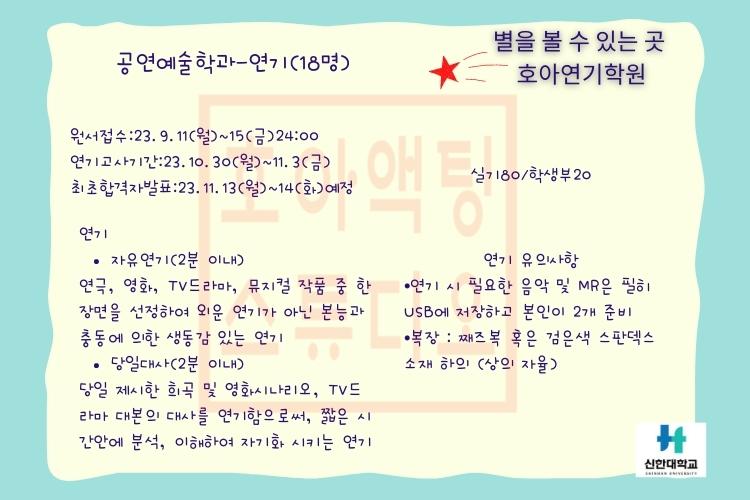 별을 볼 수 있는 곳
호아연기학원
공연예술학과-연기(18명)
원서접수:23.9.11(월)~15(금)24:00
연기고사기간:23.10.30(월)~11.3(금)
최초합격자발표:23.11.13(월)~14(화)예정
실기80/학생부20
연기
• 자유연기(2분 이내)
연극, 영화, TV드라마, 뮤지컬 작품 중 한
장면을 선정하여 외운 연기가 아닌 본능과
충동에 의한 생동감 있는 연기
• 당일대사(2분 이내)
당일 제시한 희곡 및 영화시나리오, TV드
라마 대본의 대사를 연기함으로써, 짧은 시
간안에 분석, 이해하여 자기화 시키는 연기
연기 유의사항
•연기 시 필요한 음악 및 MR은 필히
USB에 저장하고 본인이 2개 준비
•복장 : 째즈복 혹은 검은색 스판덱스
소재 하의 (상의 자율)
호아액팅
스튜디오
신한대학교
SHINHAN UNIVERSITY